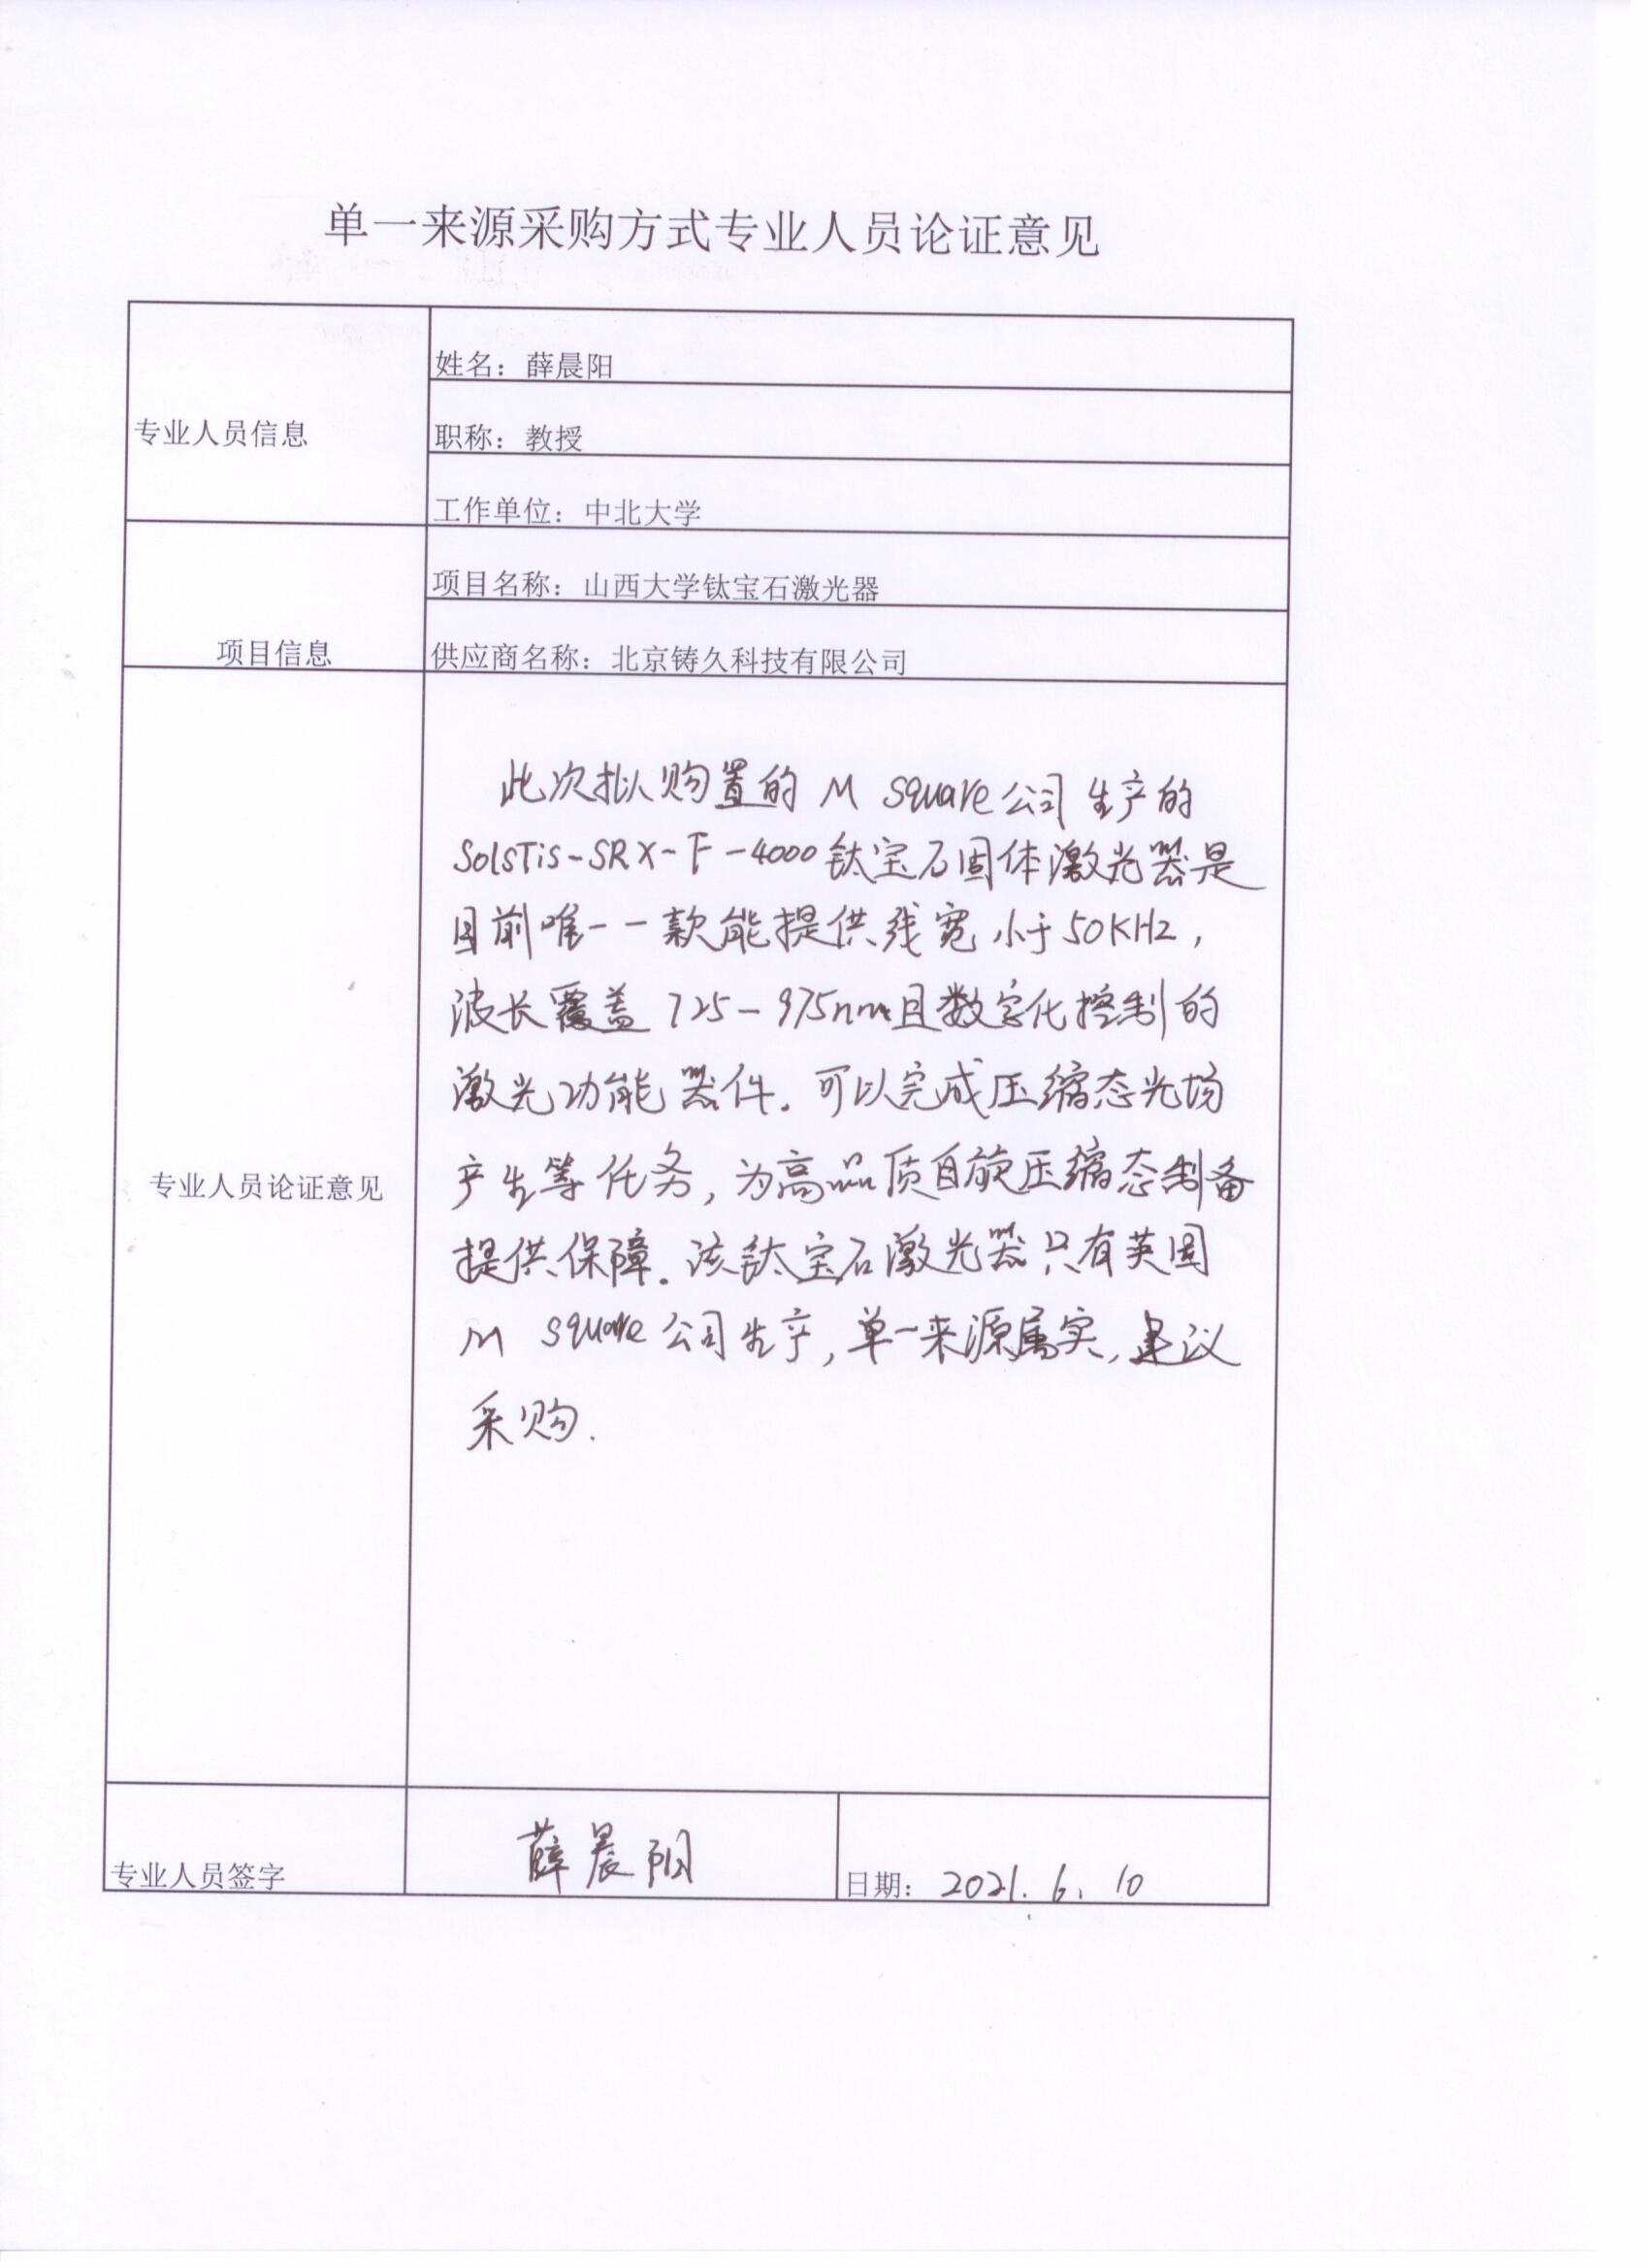 单一来源采购方式专业人员论证意见
专业人员信息
姓名：薛晨阳
职称：教授
工作单位：中北大学
项目信息
项目名称：山西大学钛宝石激光器
供应商名称：北京铸久科技有限公司
专业人员论证意见
此次拟购置的 M square公司生产的
SolsTis-SRX-F-4000钛宝石固体激光器是
目前唯一一款能提供线宽小于50KHz，
波长覆盖 725-975nm且数字化控制的
激光功能器件。可以完成压缩态光场
产生等任务，为高品质自旋压缩态制备
提供保障。该钛宝石激光器只有英国
M square公司生产，单一来源属实，建议
采购.
专业人员签字
薛晨阳
日期：2021.6.10